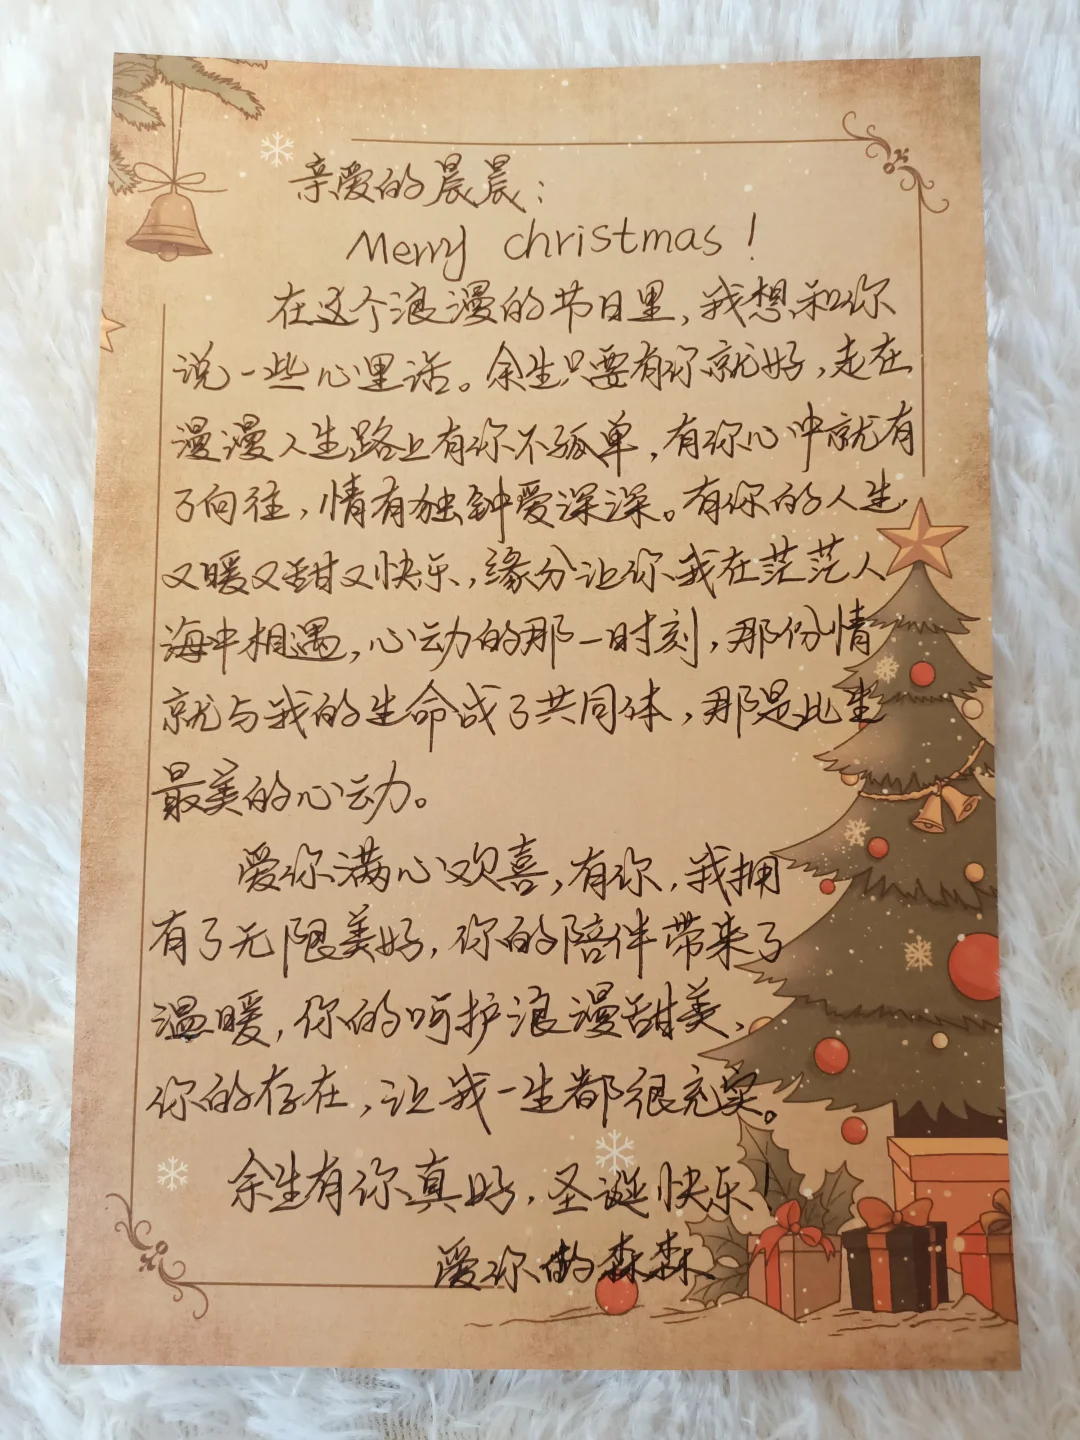 亲爱的晨晨：
Merry christmas！
在这个浪漫的节日里，我想和你
说一些心里话。余生只要有你就好，走在
漫漫人生路上有你不孤单，有你心中就有
了向往，情有独钟爱深深。有你的人生，
又暖又甜又快乐，缘分让你我在茫茫人
海中相遇，心动的那一时刻，那份情
就与我的生命成了共同体，那是此生
最美的心动。
爱你满心欢喜，有你，我拥
有了无限美好，你的陪伴带来了
温暖，你的呵护浪漫甜美，
你的存在，让我一生都很充实。
余生有你真好，圣诞快乐！
爱你的森森